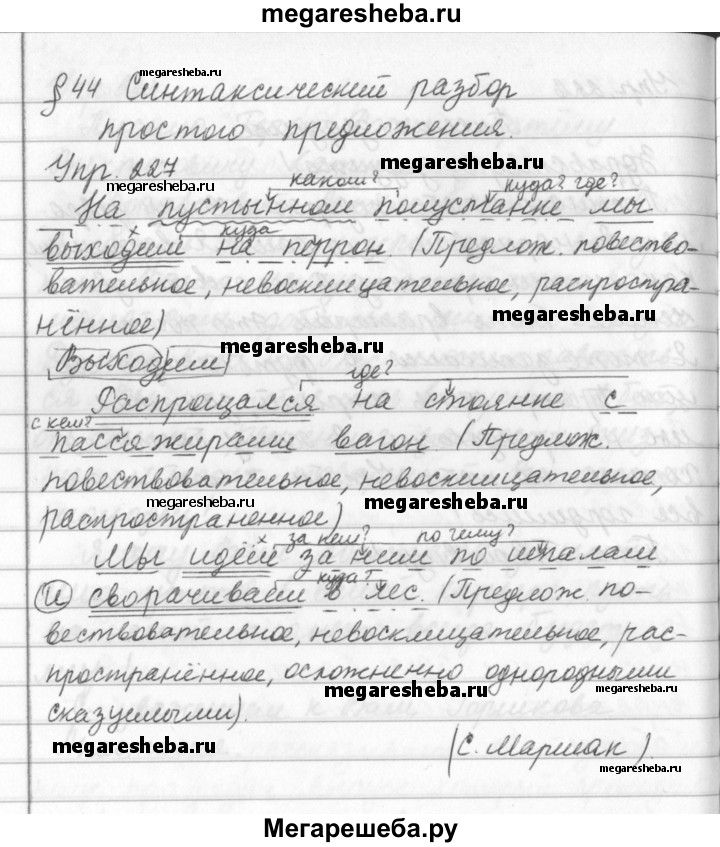 megaresheba.ru
megaresheba.ru
§ 44 Синтаксический разбор
простого предложения.
megaresheba.ru
Упр. 227
megaresheba.ru какой? куда? где?
На пустынном полустанке мы
куда
выходим на перрон (Предлож. повество-
вательное, невосклицательное, распростра-
нённое)
megaresheba.ru
megaresheba.ru
Выходим
где?
Распрощался на стоянке с
с кем?
пассажирами вагон. (Предлож.
megaresheba.ru
повествовательное, невосклицательное,
megaresheba.ru megaresheba.ru
распространенное)
за кем? почему?
Мы идём за ним по шпалам
куда?
И сворачиваем в лес. (Предлож. по-
вествовательное, невосклицательное, рас-
пространённое, осложненно однородными
megaresheba.ru megaresheba.ru
сказуемыми).
megaresheba.ru
(С. Маршак).
megaresheba.ru
Мегарешеба.ру